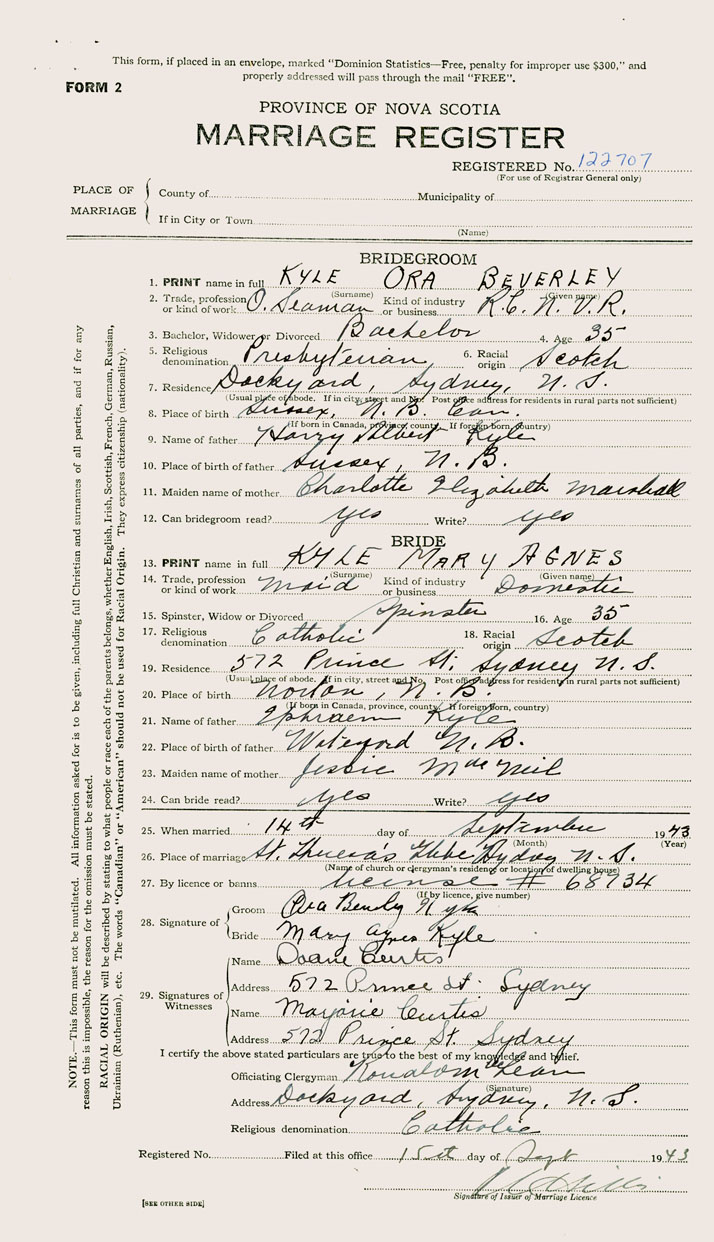 This form, if placed in an envelope, marked "Dominion Statistics—Free, penalty for improper use $300," and
properly addressed will pass through the mail "FREE".
FORM 2
PROVINCE OF NOVA SCOTIA
MARRIAGE REGISTER
REGISTERED No. 122707
(For use of Registrar General only)
PLACE OF MARRIAGE
County of Municipality of
If in City or Town
(Name)
BRIDEGROOM
1. PRINT name in full KYLE ORA BEVERLEY
(Surname) (Given name)
2. Trade, profession or kind of work O. Seaman Kind of industry or business R.C.N.V.R.
3. Bachelor, Widower or Divorced Bachelor 4. Age 35
5. Religious denomination Presbyterian 6. Racial origin Scotch
7. Residence Dockyard, Sydney, N. S.
(Usual place of abode. If in city, street and No. Post office address for residents in rural parts not sufficient)
8. Place of birth Sussex, N. B. Can.
(If born in Canada, province, county. If foreign born, country)
9. Name of father Harry Albert Kyle
10. Place of birth of father Sussex, N. B.
11. Maiden name of mother Charlotte Elizabeth Marshall
12. Can bridegroom read? yes Write? yes
BRIDE
13. PRINT name in full KYLE MARY AGNES
(Surname) (Given name)
14. Trade, profession or kind of work Maid Kind of industry or business Domestic
15. Spinster, Widow or Divorced Spinster 16. Age 35
17. Religious denomination Catholic 18. Racial origin Scotch
19. Residence 572 Prince St. Sydney N. S.
(Usual place of abode. If in city, street and No. Post office address for residents in rural parts not sufficient)
20. Place of birth Norton, N. B.
(If born in Canada, province, county. If foreign born, country)
21. Name of father Ephraem Kyle
22. Place of birth of father Waterford N. B.
23. Maiden name of mother Jessie MacNeil
24. Can bride read? yes Write? yes
25. When married 14th day of September 1943
(Month) (Year)
26. Place of marriage St. Theresa's Glebe Sydney N. S.
(Name of church or clergyman's residence or location of dwelling house)
27. By licence or banns license # 68734
(If by licence, give number)
28. Signature of
Groom Ora Kyle
Bride Mary Agnes Kyle
29. Signatures of Witnesses
Name Doane Curtis
Address 572 Prince St. Sydney
Name Marjorie Curtis
Address 572 Prince St. Sydney
I certify the above stated particulars are true to the best of my knowledge and belief.
Officiating Clergyman
(Signature)
Address Dockyard, Sydney, N. S.
Religious denomination Catholic
Registered No. Filed at this office 15th day of Sept 1943
Signature of Issuer of Marriage Licence
[SEE OTHER SIDE]
NOTE.—This form must not be mutilated. All information asked for is to be given, including full Christian and surnames of all parties, and if for any
reason this is impossible, the reason for the omission must be stated.
RACIAL ORIGIN will be described by stating to what people or race each of the parents belongs, whether English, Irish, Scottish, French, German, Russian,
Ukrainian (Ruthenian), etc. The words "Canadian" or "American" should not be used for Racial Origin. They express citizenship (nationality).